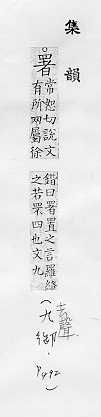 集韻
署
常恕切說文
有所网屬徐
鍇曰署置之言羅絡
之若罘网也文九
去聲
(九御·P492)